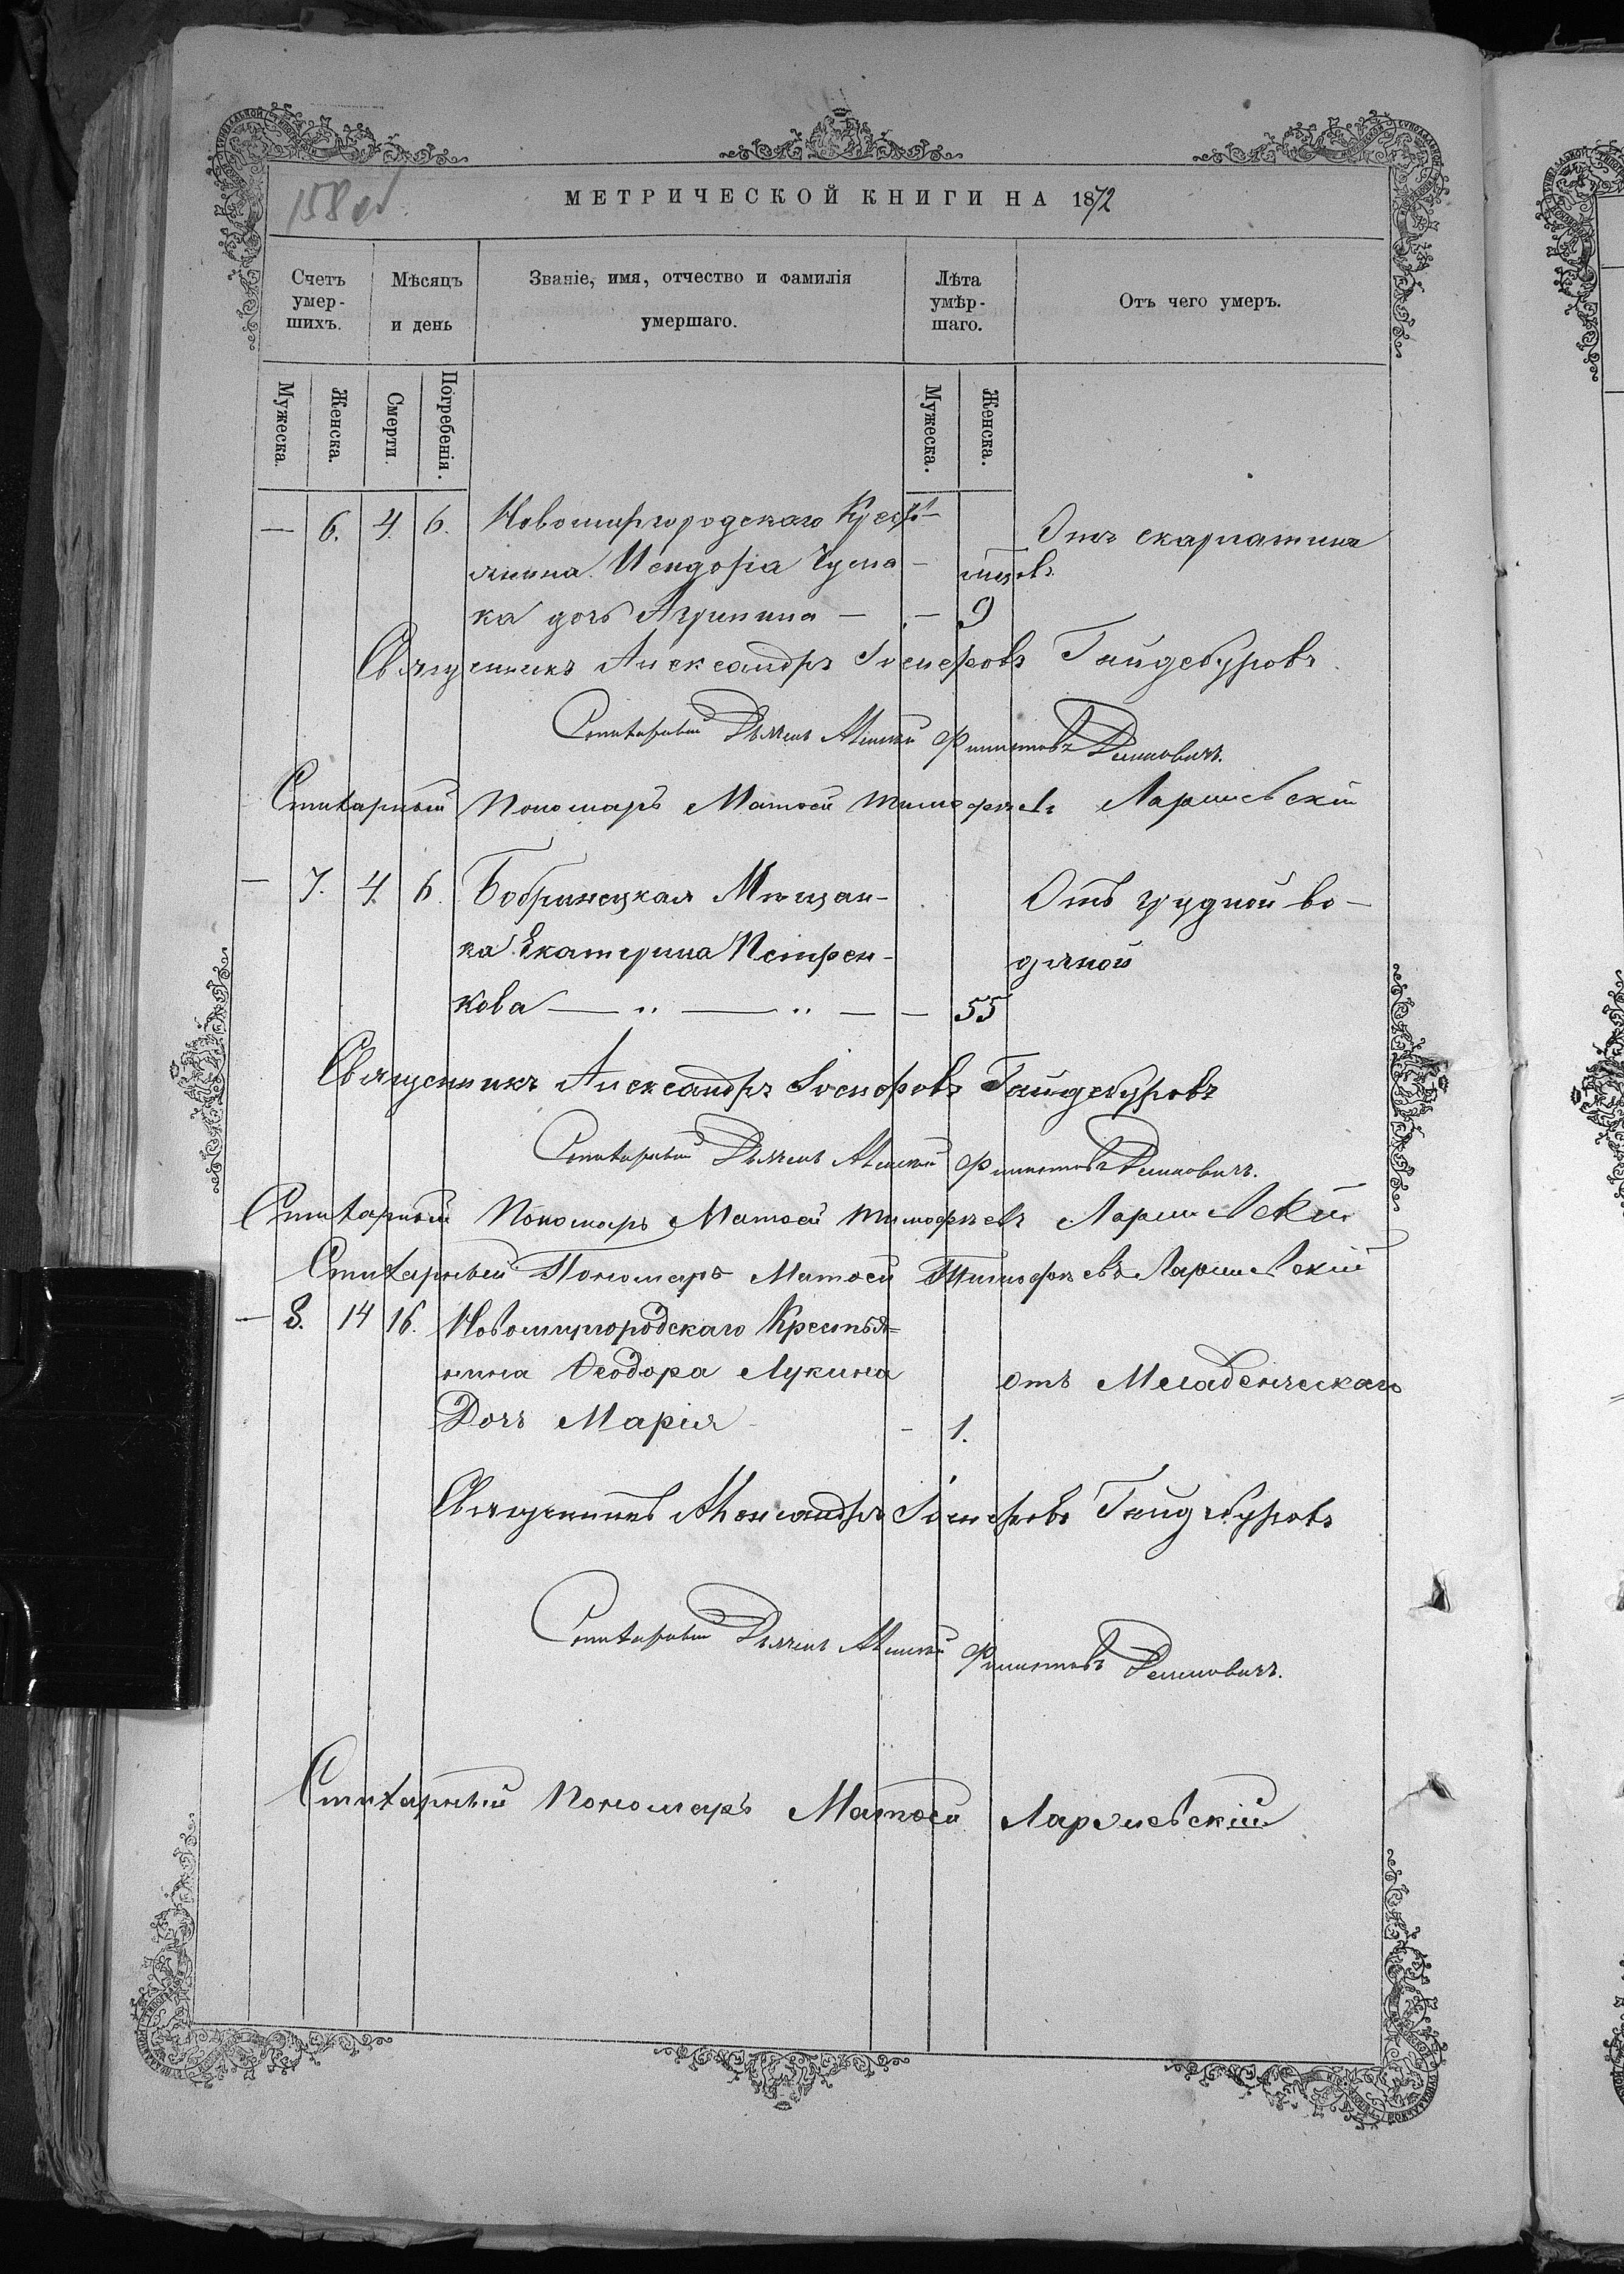 158 об.
МЕТРИЧЕСКОЙ КНИГИ НА 1872
Счетъ умер-шихъ.
Мѣсяцъ и день
Званіе, имя, отчество и фамилія умершаго.
Лѣта умѣр-шаго.
Отъ чего умеръ.
Мужеска.
Женска.
Смерти.
Погребенія.
Мужеска.
Женска.
— 6. 4. 6. Новомиргородскаго Крестъ-
янина Исидора Чума-
ка дочь Агрипина — — 9
мцов.
Отъ скарлатина
Священникъ Александръ Іосифовъ Гайдебуровъ.
Стихарный Дьячекъ Алексѣй Филиповъ Димовичъ.
Стихарный Пономаръ Матѳей Тимофѣевъ Ларшевскій
— 7. 4. 6. Бобринецкая Мѣщан-
ка Екатерина Петрен-
кова — „ — „ — — 55
Отъ грудной во-
дяной
Священникъ Александръ Іосифовъ Гайдебуровъ
Стихарный Дьячекъ Алексѣй Филиповъ Димовичъ.
Стихарный Пономаръ Матѳей Тимофѣевъ Ларшевскій
Стихарный Пономаръ Матѳей Тимофѣевъ Ларшевскій
— 8. 14 16. Новомиргородскаго Крестья=
нина Ѳеодора Лукина
Дочь Марія — 1.
отъ Младенческаго
Священникъ Александръ Іосифовъ Гайдебуровъ
Стихарный Дьячекъ Алексѣй Филиповъ Димовичъ.
Стихарный Пономаръ Матѳей Ларшевскій